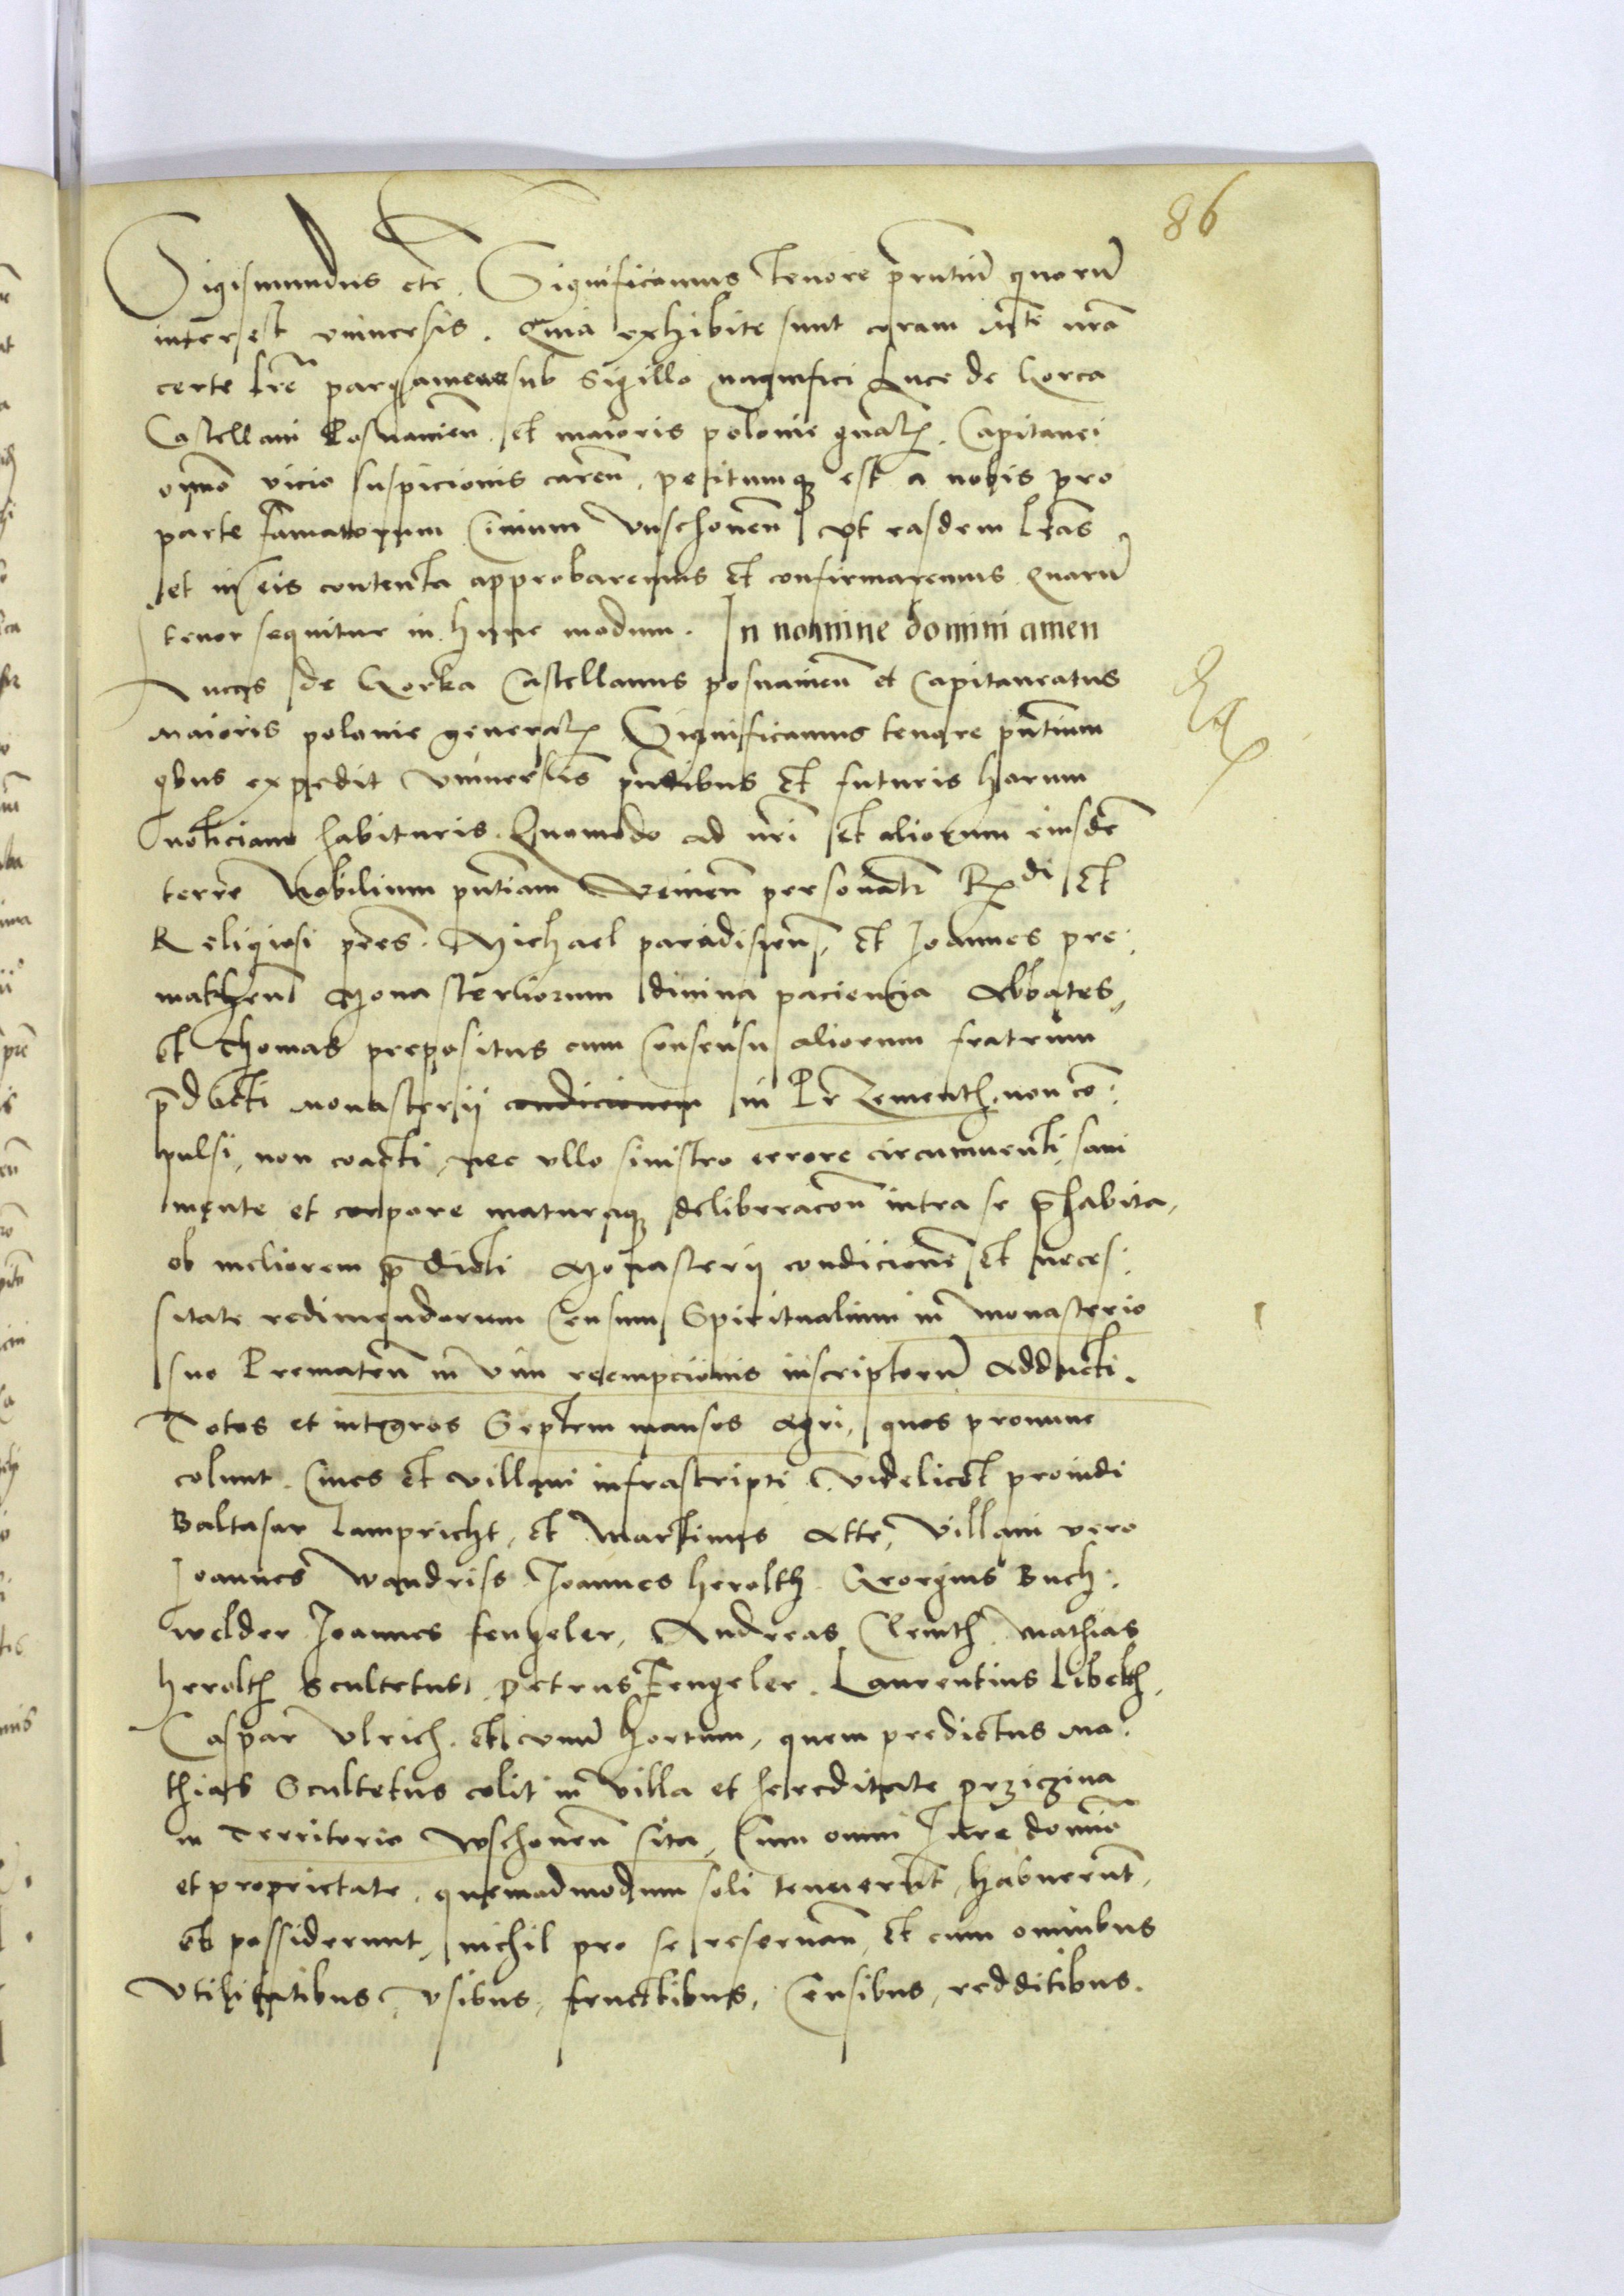 86
Sigismundus etc. Significamus tenore prntiu quoru
interest universis. Quia exhibite sunt coram Mte nra
certe lre pargamenee sub sigillo magnifici Luce de Gorca
Castellani Posnanien et maioris polonie gnal. Capitanei
omno vicio suspicionis caren, petitumq est a nobis pro
parte famatorum Civium Vuschonen vt easdem lras
et in eis contenta approbaremus et confirmaremus Quaru
tenor sequitur in hunc modum. In nomine domini amen
Lucas de Gorka Castellanus posnanien et Capitaneatus
Maioris polonie general Significamus tenore pntium
qbus expedit Vniversis pntibus et futuris harum
noticiam habituris. Quomodo ad nri et aliorum eiusde
terre Nobilium pntiam Venien personalr Rdi et
Religiosi pres. Michael paradisien, et Joannes pre:
mathen Monasteriorum divina paciencia Abbates,
et Thomas prepositus cum Consensu aliorum fratrum
pdicti monasterij condicionem in Przementh, non co:
pulsi, non coacti, nec vllo sinistro errore circumventi, sani
mente et corpore maturaq deliberacon intra se phabita,
ob meliorem pdicti Monasterij condicione et neces:
sitate redimendorum Censuum Spiritualium in Monasterio
suo Prematen in vim reempcionis inscriptoru Adducti.
Totos et integros Septem mansos Agri, quos pronunc
colunt Cives et villani infrascripti, videlicet providi
Baltasar Lampricht, et Martinus Atte, Villani vero
Joannes Wandriss Joannes herolth. Georgius Buch:
welder Joannes fengeler, Andreas Clemth Mathias
herolth Scultetus, Petrus Fengeler, Laurentius Libelth,
Caspar Vlrich, et vnu hortum, quem predictus Ma:
thias Scultetus colit in Villa et hereditate przizina
in Territorio Wschonen sita, Cum omni Jure domio
et proprietate, quemadmodum soli tenuerunt, habuerunt,
et possiderunt, nichil pro se reservan, et cum omnibus
Vtilitatibus, Vsibus, fructibus, Censibus, redditibus.